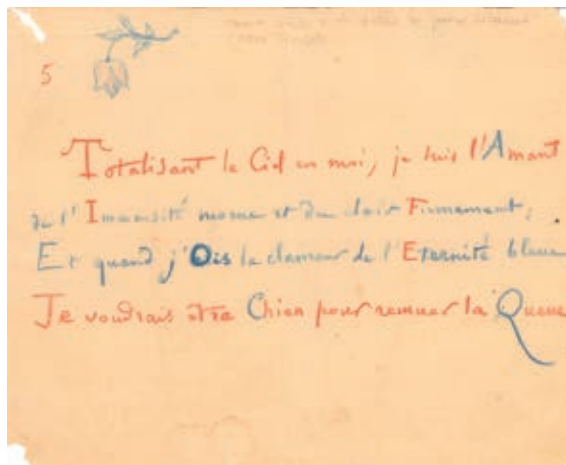 5
Totalisant le Ciel en moi, je suis l'Amant
de l'Immensité morne et du clair Firmament,
Et quand j'Ois la clameur de l'Eternité bleue
Je voudrais être Chien pour remuer la Queue